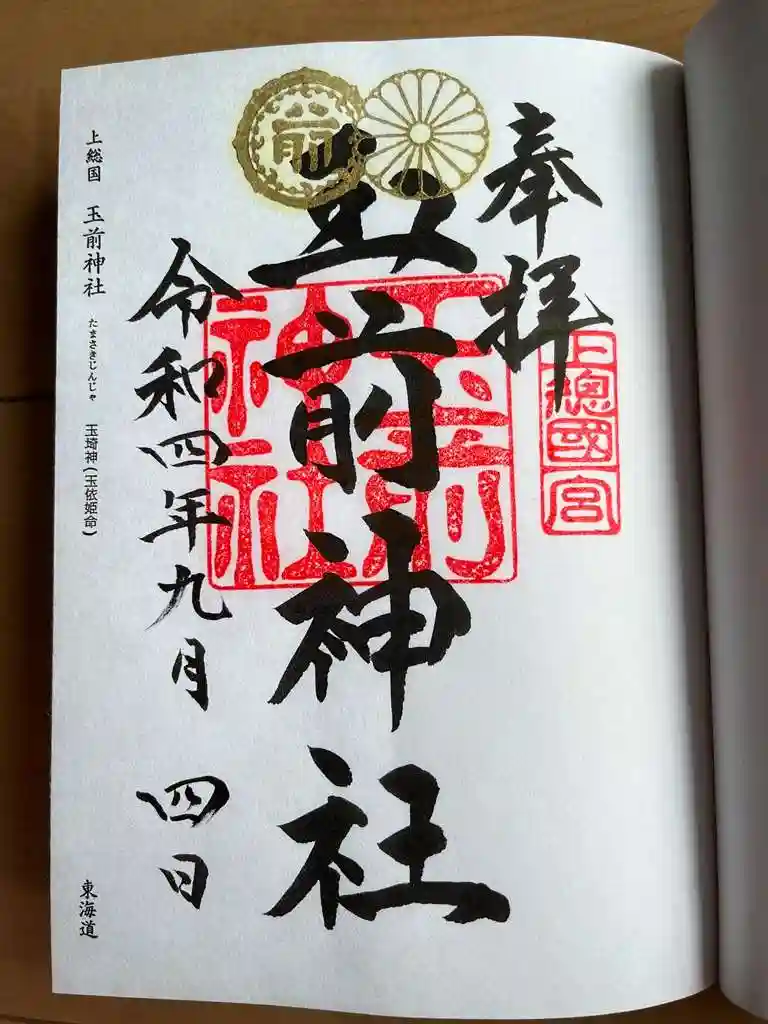 奉拝
上總國一宮
前
玉前神社
玉前神社
令和四年九月 四日
上総国 玉前神社 たまさきじんじゃ 玉埼神(玉依姫命)
東海道